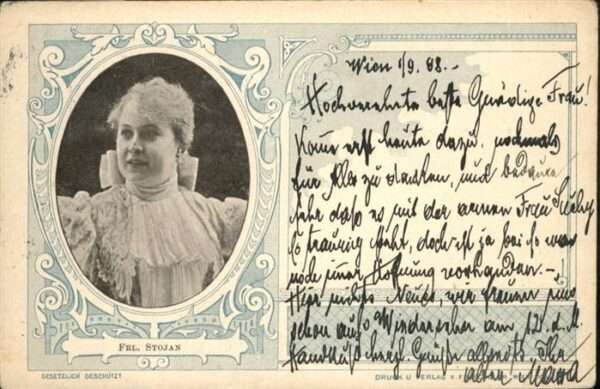 Wien 1/9. 98.-
Hochverehrte beste Gnädige Frau!
Komme erst heute dazu, nochmals
für Alles zu danken, und bedaure
sehr daß es mit der armen Frau
so traurig steht, doch ist ja bei so
noch immer Hoffnung vorhanden.-
Hier nichts Neues, wir freuen uns
schon aufs Wiedersehen am 12. d. M.
Handkuß herzl. Grüße allerseits, Ihre
alte
FRL. STOJAN
GESETZLICH GESCHÜTZT
DRUCK U VERLAG V.